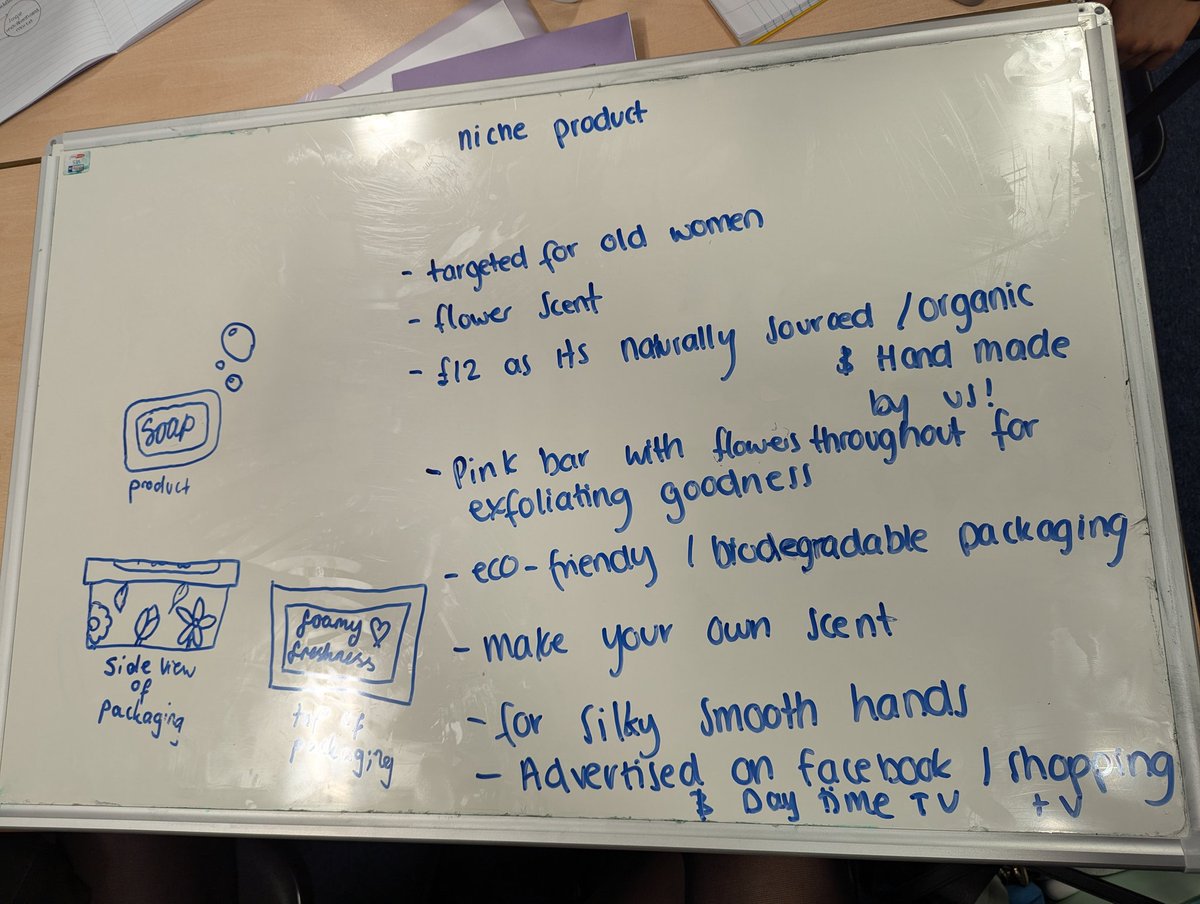 niche product
- targeted for old women
- flower scent
- £12 as its naturally sourced / organic
& Hand made
by us!
- Pink bar with flowers throughout for
exfoliating goodness
- eco-friendy / biodegradable packaging
- make your own scent
- for silky smooth hands
- Advertised on facebook / shopping
& Day time TV tv
Soap
product
side view
of
packaging
foamy
freshness
top of
packaging